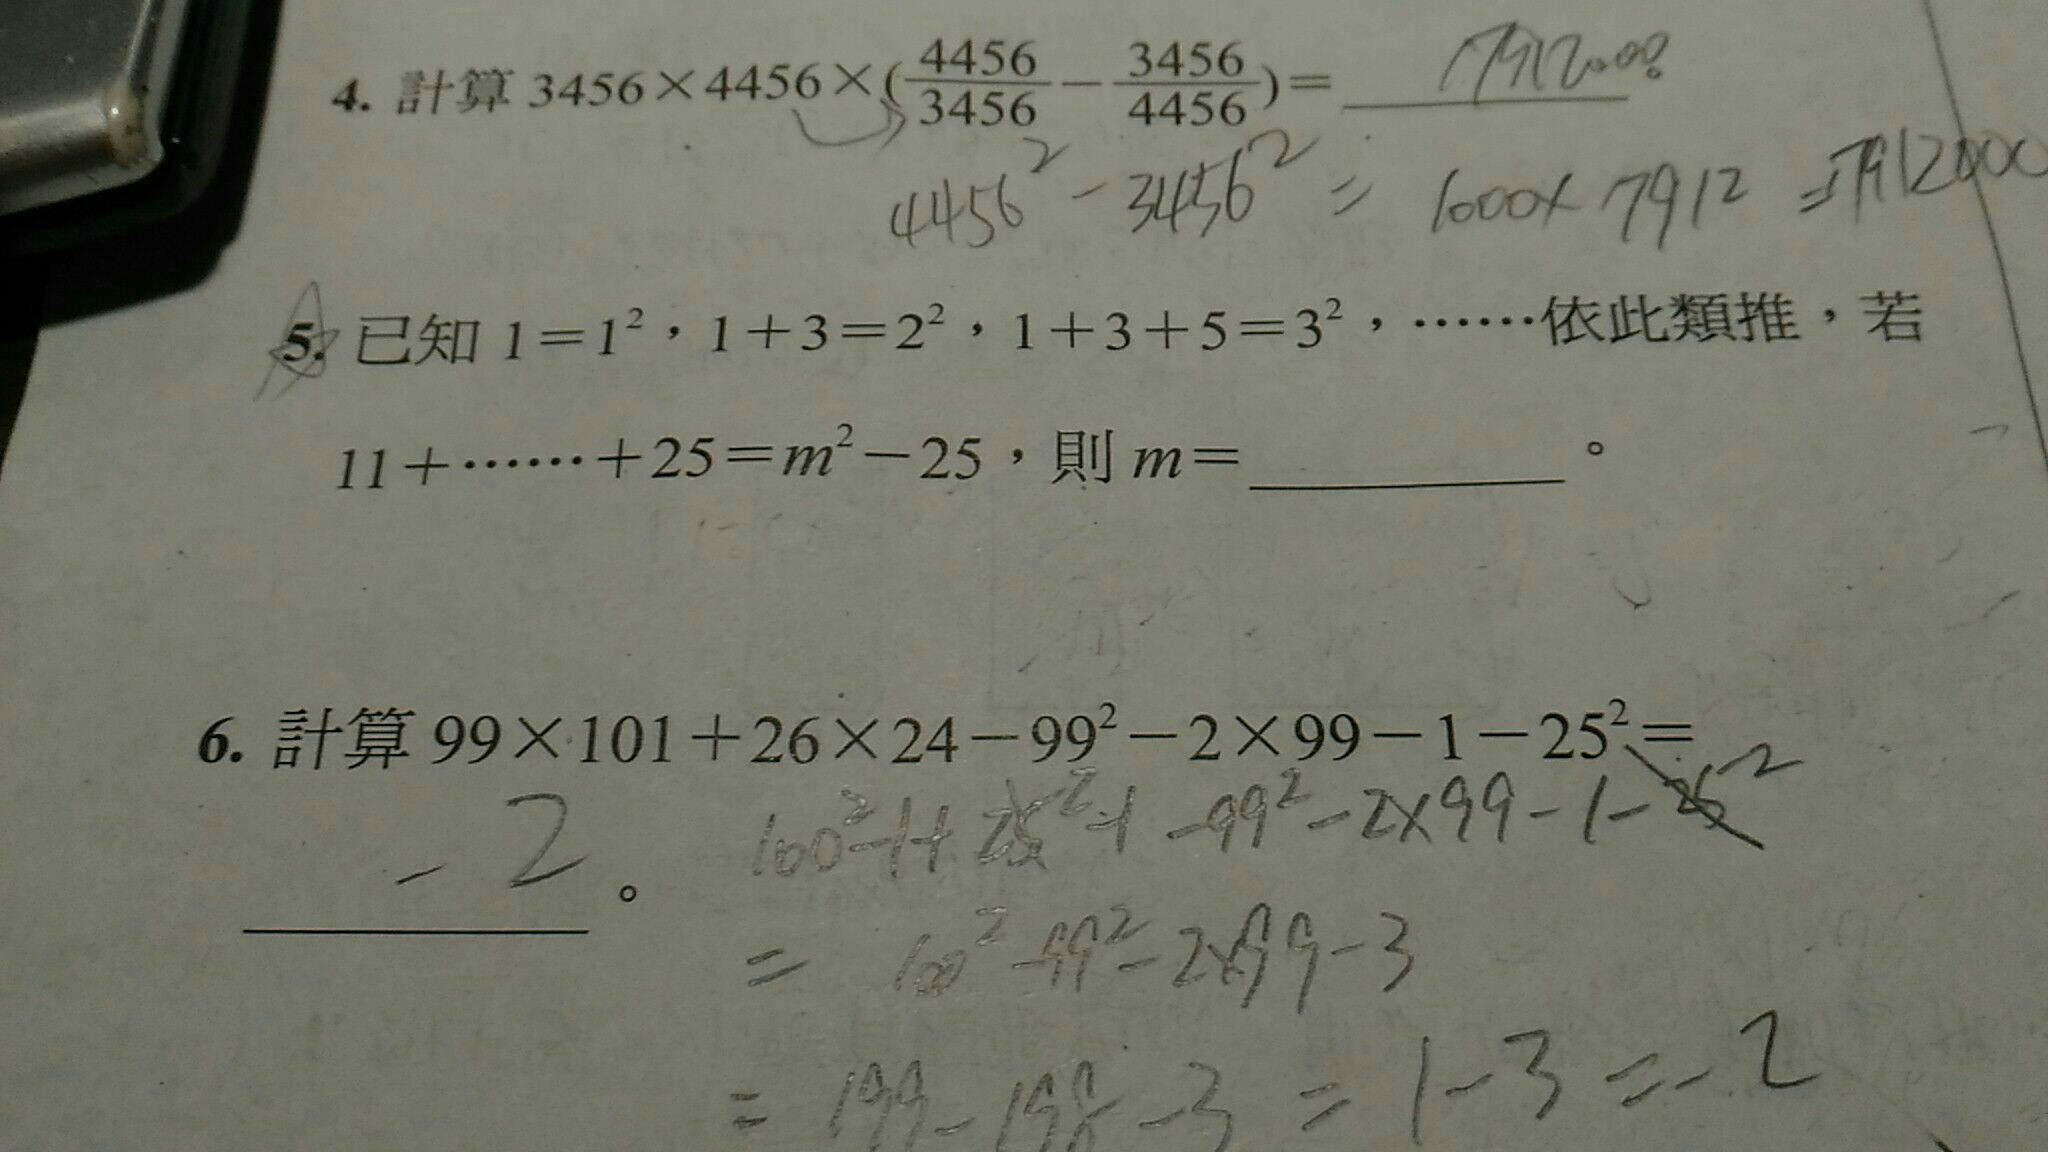 4. 計算 3456×4456×(4456/3456−3456/4456)= 7912000。
4456² − 3456² = 1000× 7912 = 7912000
5. 已知 1=1²,1+3=2²,1+3+5=3²,……依此類推,若
11+……+25=m²−25,則 m=________。
6. 計算 99×101+26×24−99²−2×99−1−25²=
−2。
100²−1+25²−1−99²−2×99−1−25²
= 100²−99²−2×99−3
= 199−198−3 = 1−3 = −2